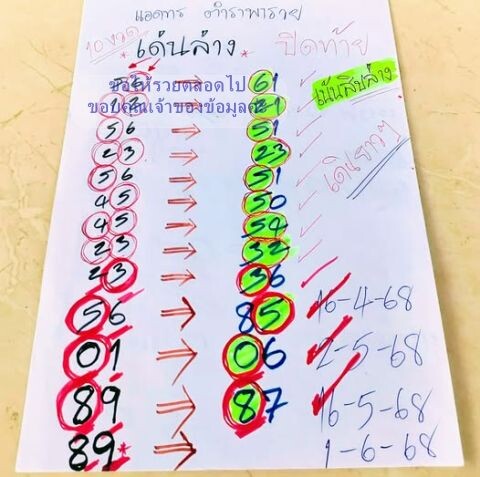 แอดการ ตำราพารวย
10 งวด
*เด่นล่าง* ปิดท้าย
ขอให้รวยตลอดไป
ขอบคุณเจ้าของข้อมูลค่ะ
เน้นสิบล่าง
เดินยาวๆ
56 → 61
→ 21
56 → 51
23 → 23
56 → 51
45 → 50
45 → 54
23 → 32
23 → 36
56 → 85 16-4-68
01 → 06 2-5-68
89 → 87 16-5-68
89* → 1-6-68